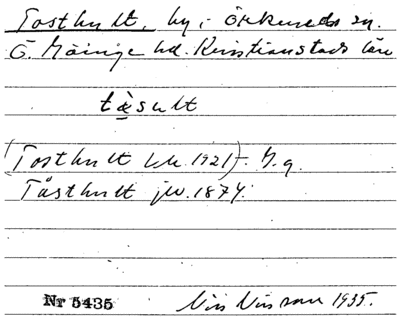 Tosthult, by i Örkeneds sn.
Ö. Göinge hd. Kristianstads län
tæ̀sult
(Tosthult km. 1921). G.g.
Tåsthult jw. 1874.
Nr 5435
Nils Nilsson 1935.